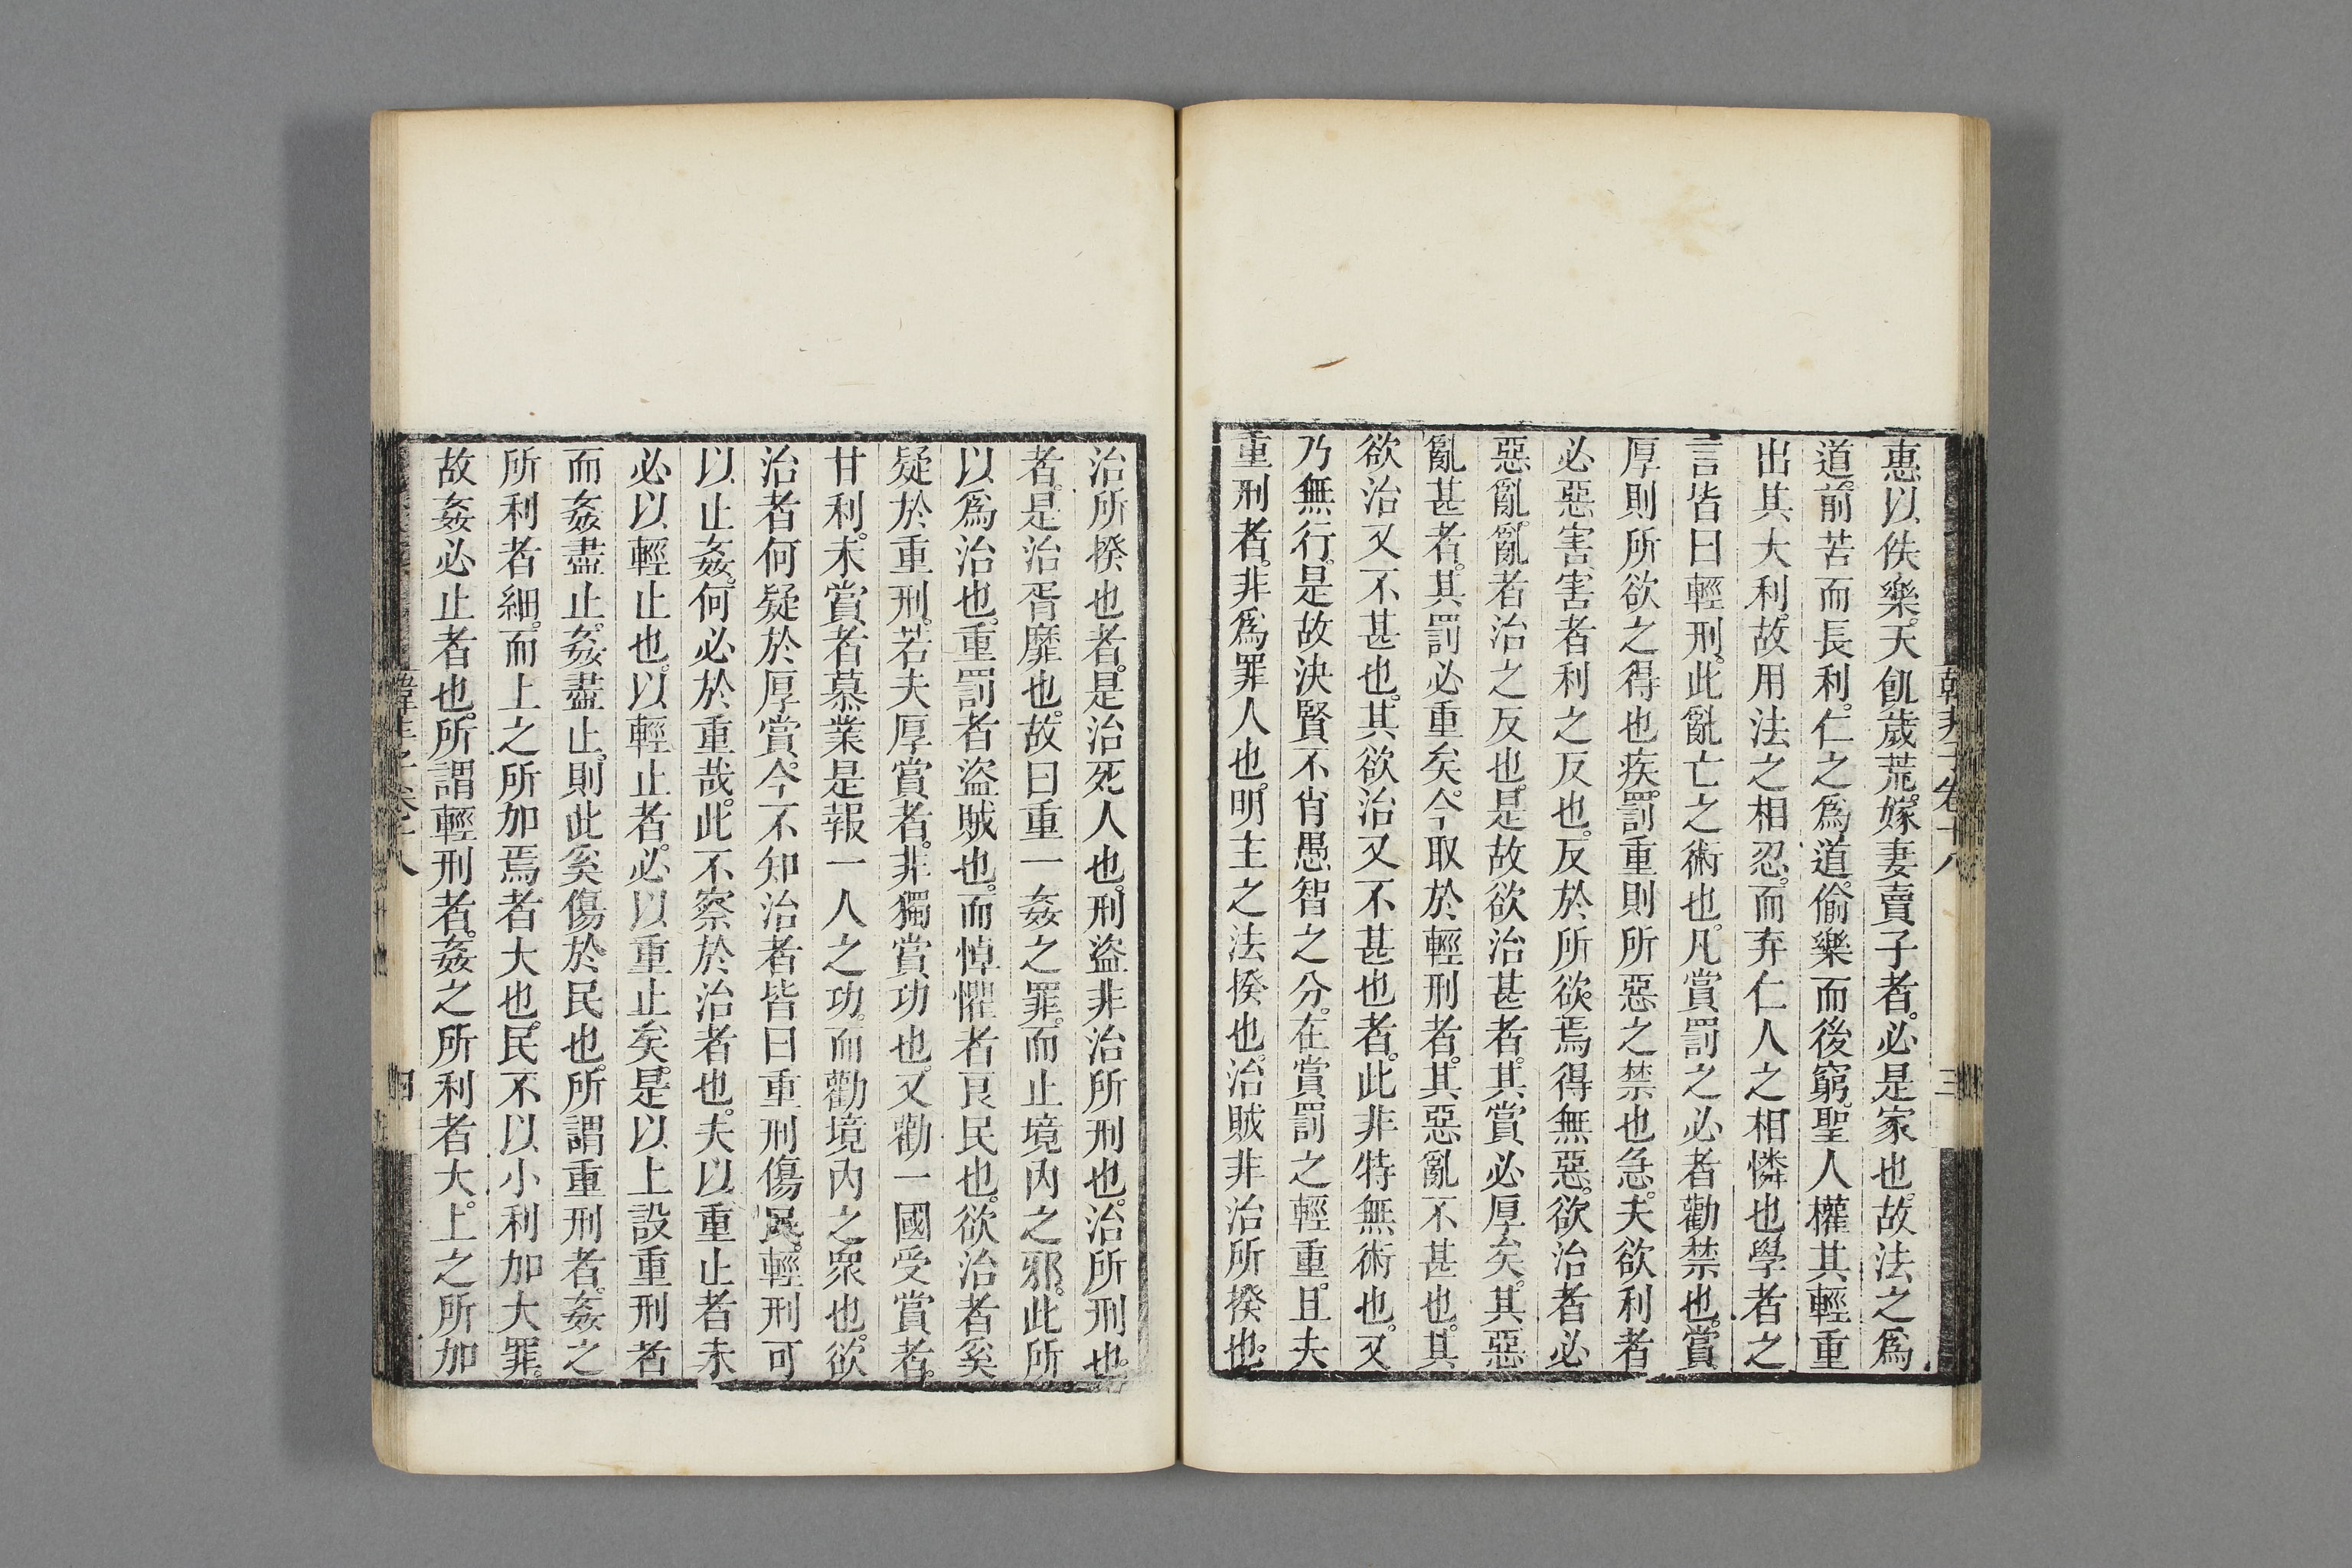 惠以佚樂。天飢歲荒。嫁妻賣子者。必是家也。故法之爲
道。前苦而長利。仁之爲道。偷樂而後窮。聖人權其輕重
出其大利。故用法之相忍。而弃仁人之相憐也學者之
言皆曰輕刑。此亂亡之術也。凡賞罰之必者勸禁也。賞
厚則所欲之得也疾。罰重則所惡之禁也急。夫欲利者
必惡害。害者利之反也。反於所欲。焉得無惡。欲治者必
惡亂。亂者治之反也。是故欲治甚者。其賞必厚矣。其惡
亂甚者。其罰必重矣。今取於輕刑者。其惡亂不甚也。其
欲治又不甚也。其欲治又不甚也者。此非特無術也。又
乃無行。是故決賢不肖愚智之分。在賞罰之輕重。且夫
重刑者。非爲罪人也。明主之法揆也。治賊非治所揆也。
韓非子卷十八
三
治所揆也者。是治死人也。刑盜非治所刑也。治所刑也。
者。是治胥靡也。故曰重一姦之罪。而止境內之邪。此所
以爲治也。重罰者盜賊也。而悼懼者良民也。欲治者奚
疑於重刑。若夫厚賞者。非獨賞功也。又勸一國受賞者。
甘利。未賞者慕業是報一人之功。而勸境內之眾也。欲
治者何疑於厚賞。今不知治者皆曰重刑傷民。輕刑可
以止姦。何必於重哉。此不察於治者也。夫以重止者未
必以輕止也。以輕止者。必以重止矣。是以上設重刑者
而姦盡止。姦盡止。則此奚傷於民也。所謂重刑者。姦之
所利者細。而上之所加焉者大也。民不以小利加大罪。
故姦必止者也。所謂輕刑者。姦之所利者大。上之所加